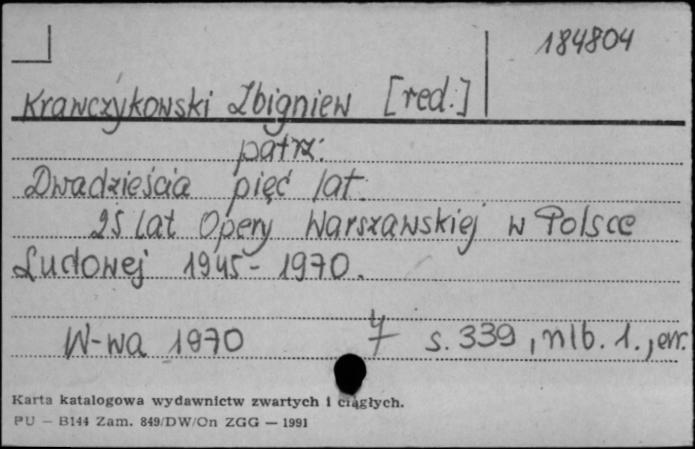 184804
Krawczykowski Zbigniew [red.]
patrz:
Dwadzieścia pięć lat.
25 lat Opery Warszawskiej w Polsce
Ludowej 1945-1970.
W-wa 1970 4 s. 339, nlb. 1.,
Karta katalogowa wydawnictw zwartych i ciągłych.
PU — B144 Zam. 849/DW/On ZGG — 1991